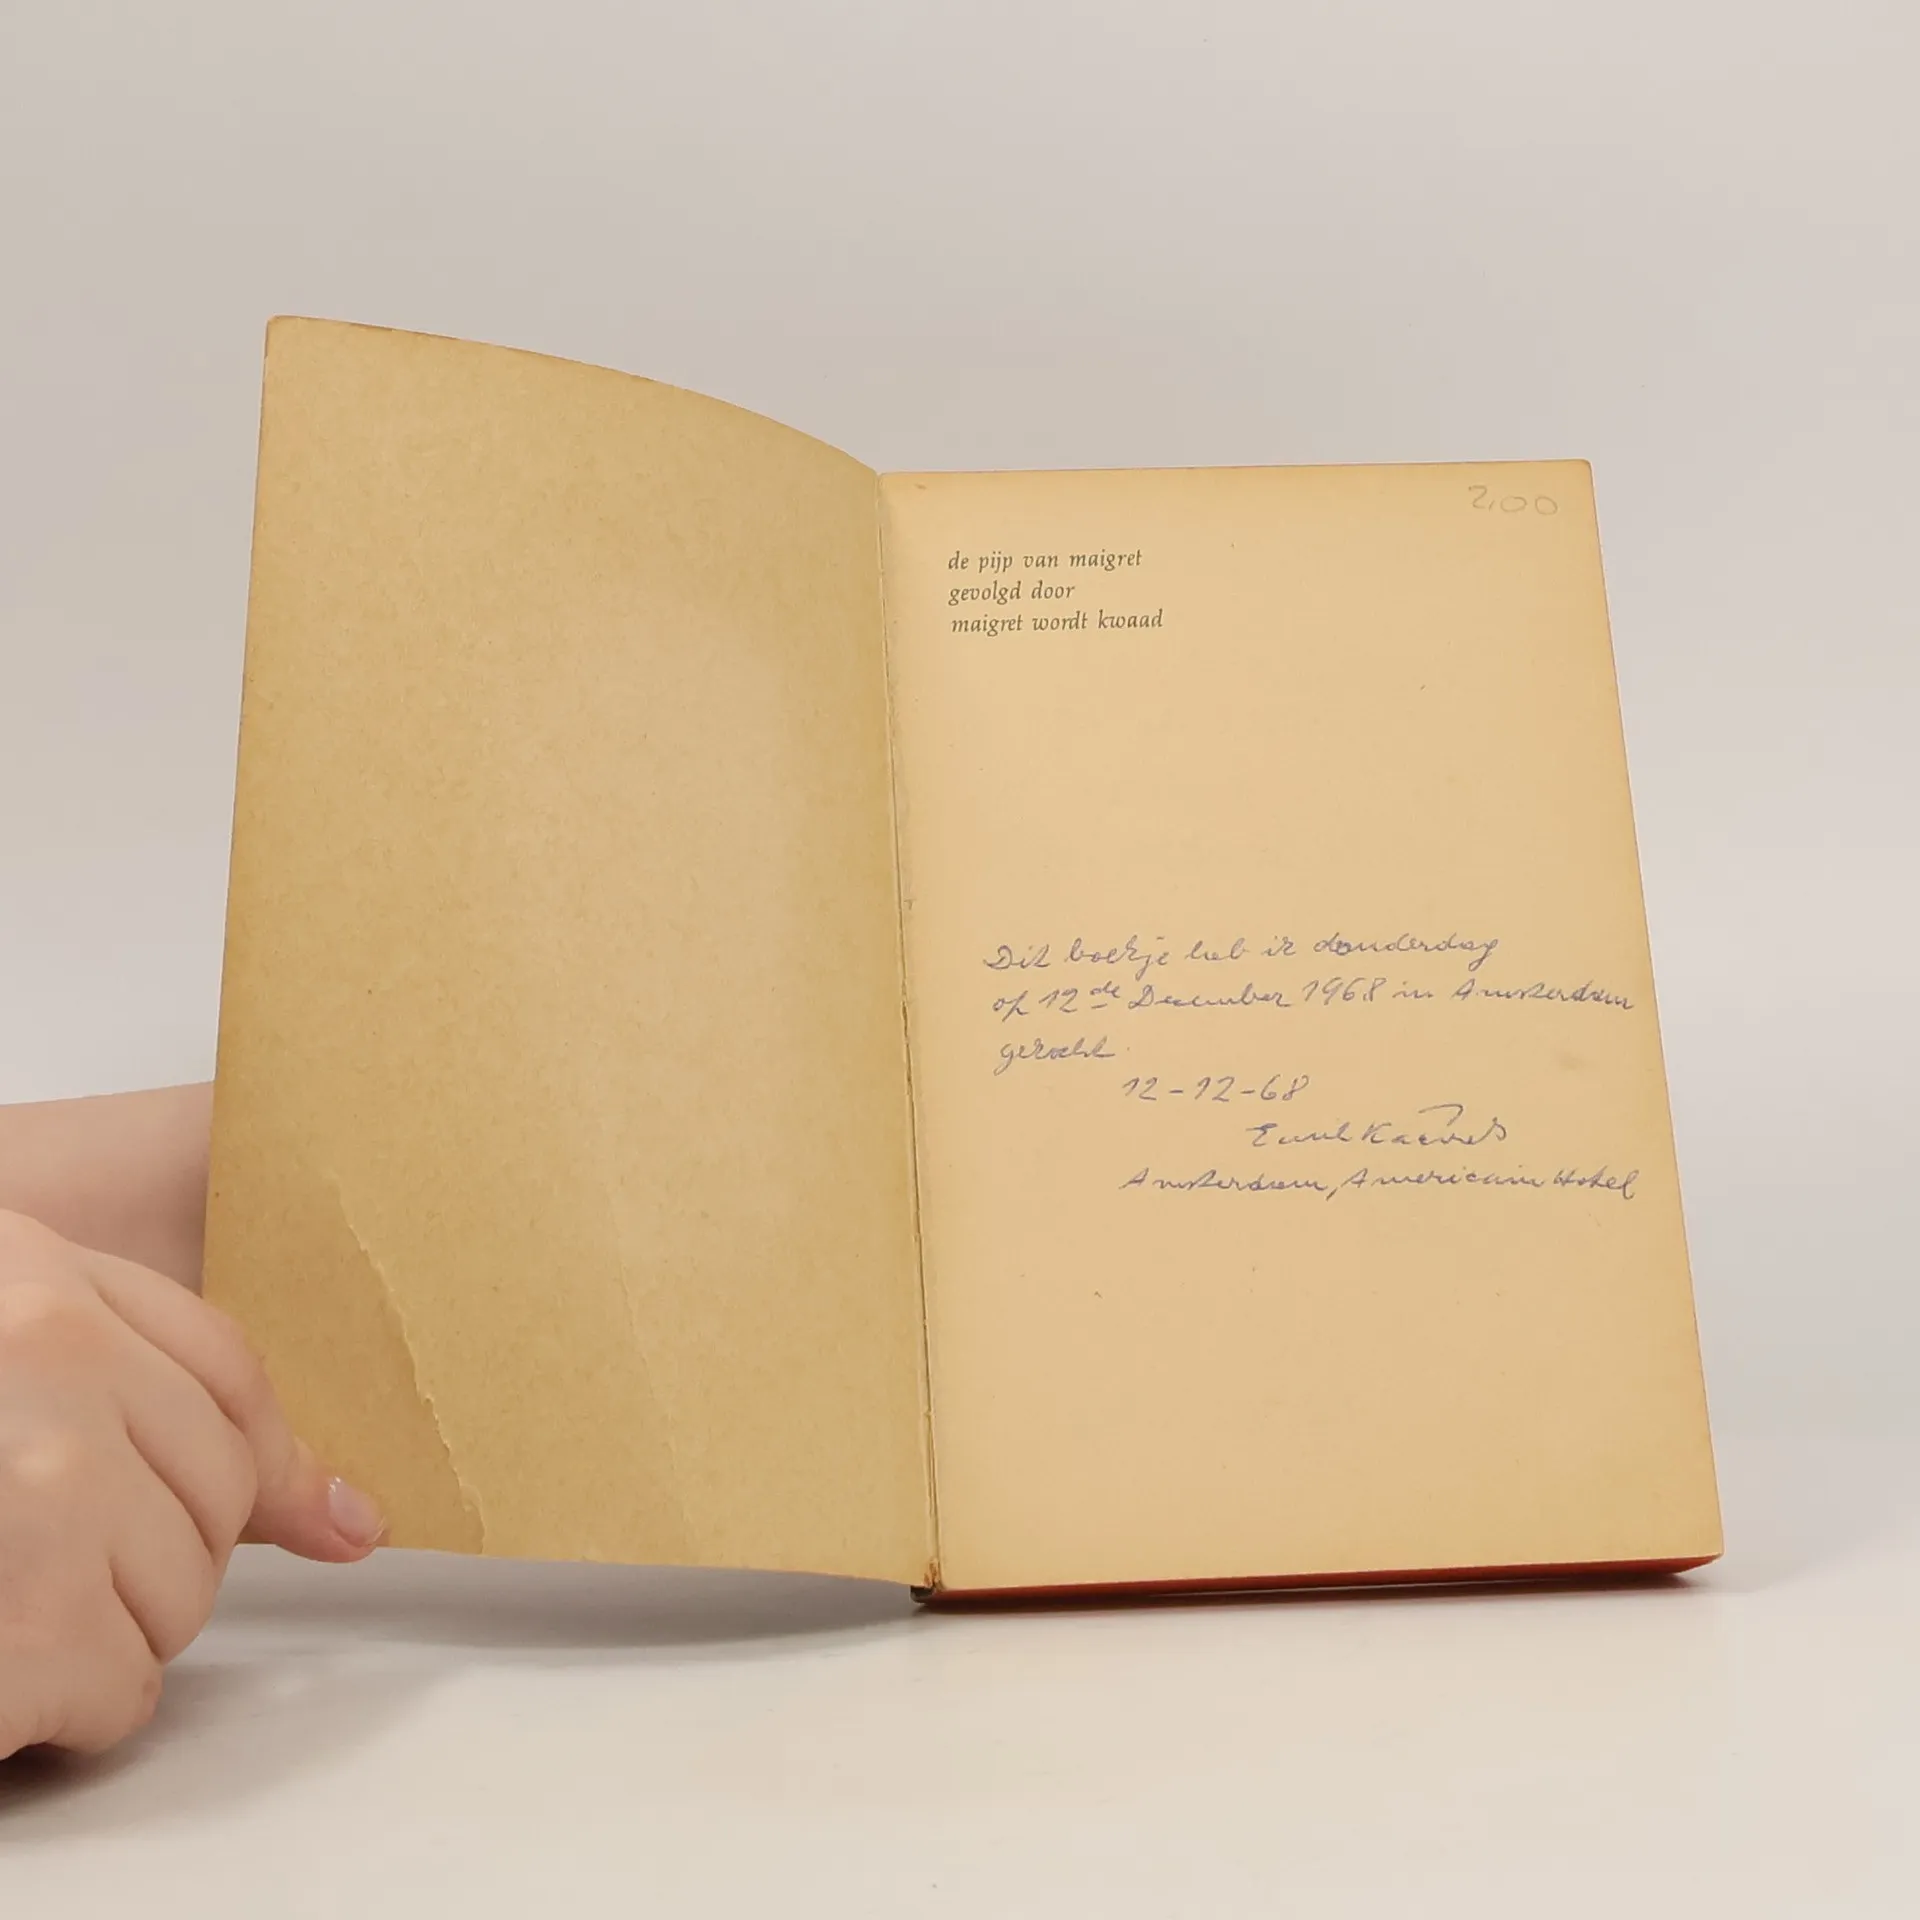 2,00
de pijp van maigret
gevolgd door
maigret wordt kwaad
Dit boekje heb ik donderdag
op 12de December 1968 in Amsterdam
gekocht.
12-12-68
Emil
Amsterdam, American Hotel